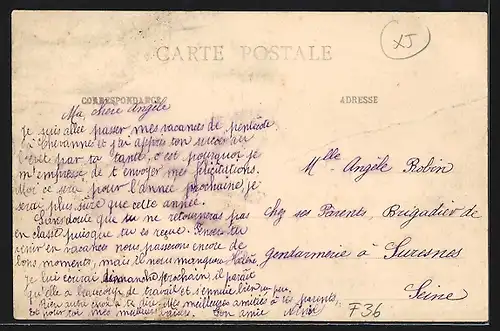 XJ
CARTE POSTALE
CORRESPONDANCE
ADRESSE
Ma chère Angèle
Je suis allée passer mes vacances de pentecôte
à Chevannes et j'ai appris ton succès au
brevet par ta tante, c'est pourquoi je
m'empresse de t'envoyer mes félicitations.
Moi ce sera pour l'année prochaine je
serai plus sûre que cette année.
Sans doute que tu ne retourneras pas
en classe puisque tu es reçue. Encore tu
venir en vacances nous passerons encore de
bons moments, mais il nous manquera Hélène
Je lui écrirai dimanche prochain il paraît
qu'elle a beaucoup de travail et s'ennuie bien un peu.
Rien autre chose à te dire des meilleures amitiés à tes parents,
et pour toi mes meilleurs baisers. Ton amie
Mlle Angèle Robin
chez ses Parents, Brigadier de
gendarmerie à Suresnes
Seine
F36